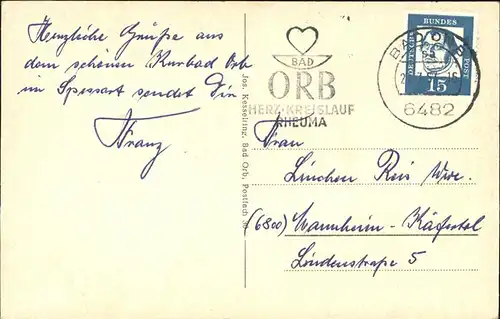 Herzliche Grüße aus
dem schönen Kurbad Orb
im Spessart sendet Dir
Franz
Jos. Kesselring, Bad Orb, Postfach
BAD
ORB
HERZ-KREISLAUF
RHEUMA
BAD ORB
6482
DEUTSCHE
BUNDES
POST
15
Frau
Linchen Reis Wwe.
(6800) Mannheim-Käfertal
Lindenstraße 5